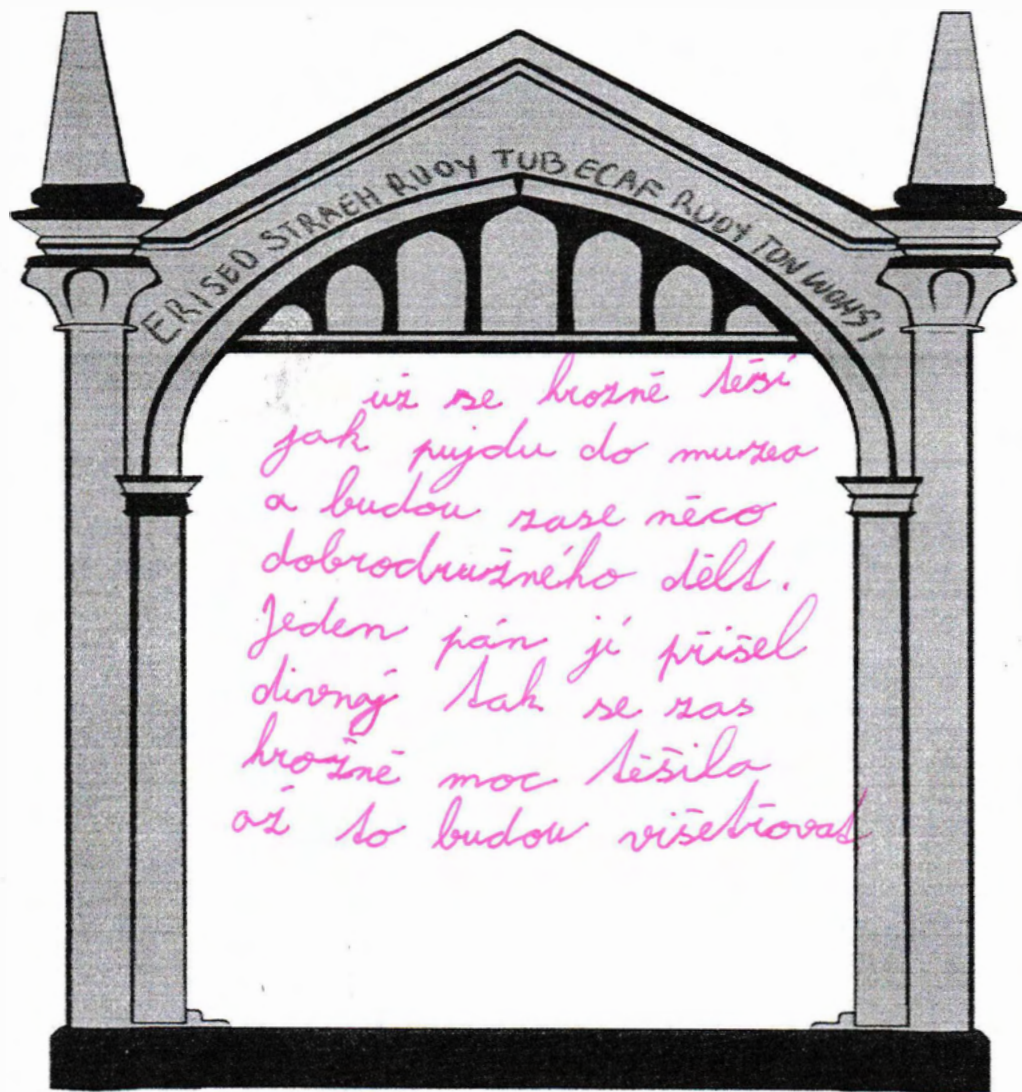 ERISED STRAEH RUOY TUB ECAF RUOY TON WOHSI
už se hrozně těší
jak pujdu do muzea
a budou zase něco
dobrodružného dělt.
Jeden pán jí přišel
divnej tak se zas
hrožně moc těšila
až to budou višetřovat